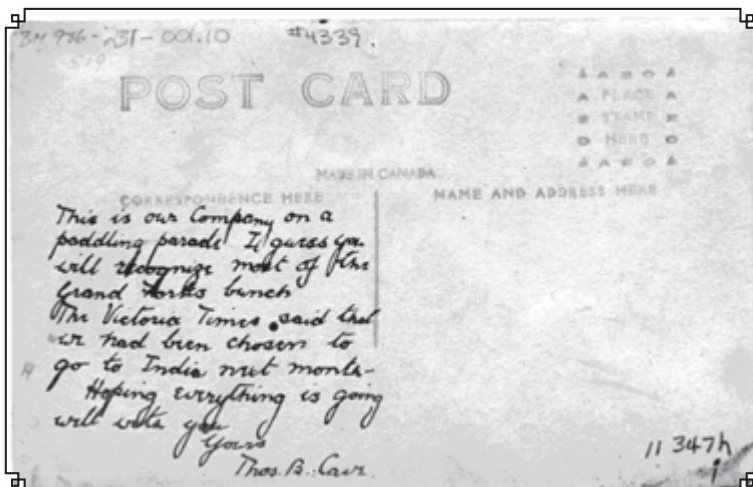 BM 986-231-001.10 #4339.
519
POST CARD
PLACE
STAMP
HERE
MADE IN CANADA
CORRESPONDENCE HERE
NAME AND ADDRESS HERE
This is our Company on a
paddling parade I guess you
will recognize most of the
Grand Forks bunch
The Victoria Times said that
we had been chosen to
go to India next month-
Hoping everything is going
well with you
Yours
Thos. B.
11 347h